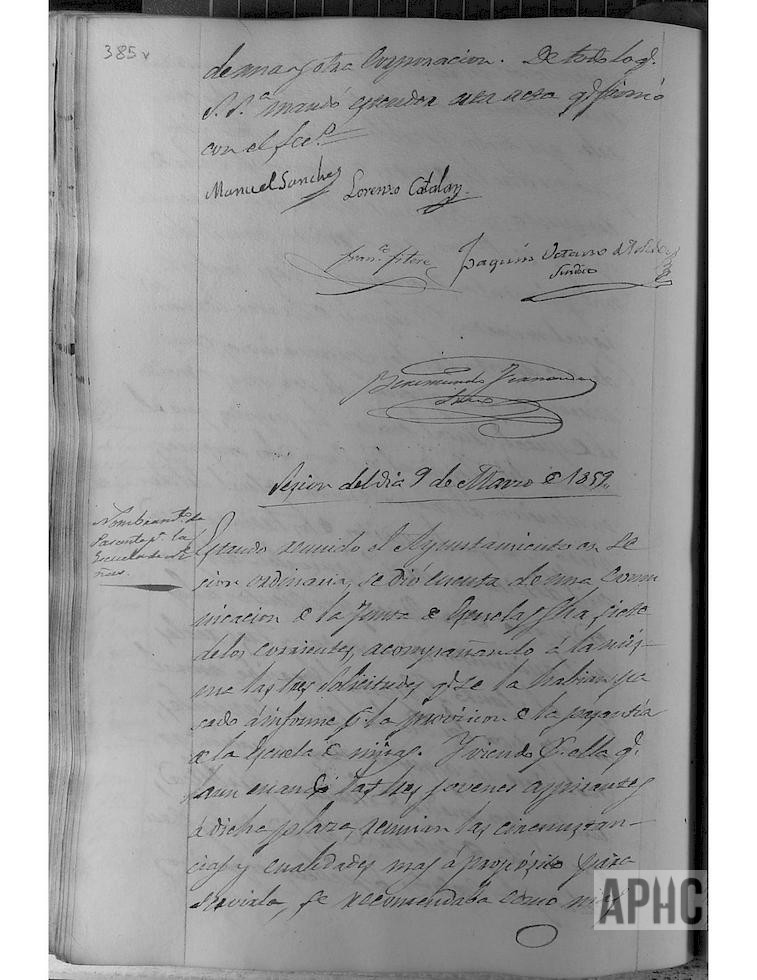 385 v
de una y otra Corporacion. De todo lo q.
S. S.ª mandó estender esta acta q. firmó
con el Sec.º
Manuel Sanchez Lorenzo Catalan
Fran.co Fitere Joaquin
Sindico
Fernandez
Srio
Sesion del dia 9 de Marzo de 1859.
Nombram.to de
Pasanta p.ª la
Escuela de Ni-
ñas.
Estando reunido el Ayuntamiento en se
sion ordinaria, se dió cuenta de una comu
nicacion de la Junta de Escuelas fha siete
de los corrientes, acompañando á la mis-
ma las tres solicitudes q. se la habian pa
sado á informe p.ª la provision de la pasantía
de la Escuela de niñas. Y viendo p.r ella q.
aun cuando las tres jovenes aspirantes
á dicha plaza, reunian las circunstan-
cias y cualidades mas á proposito para
servirla, se recomendaba como mas
APHC